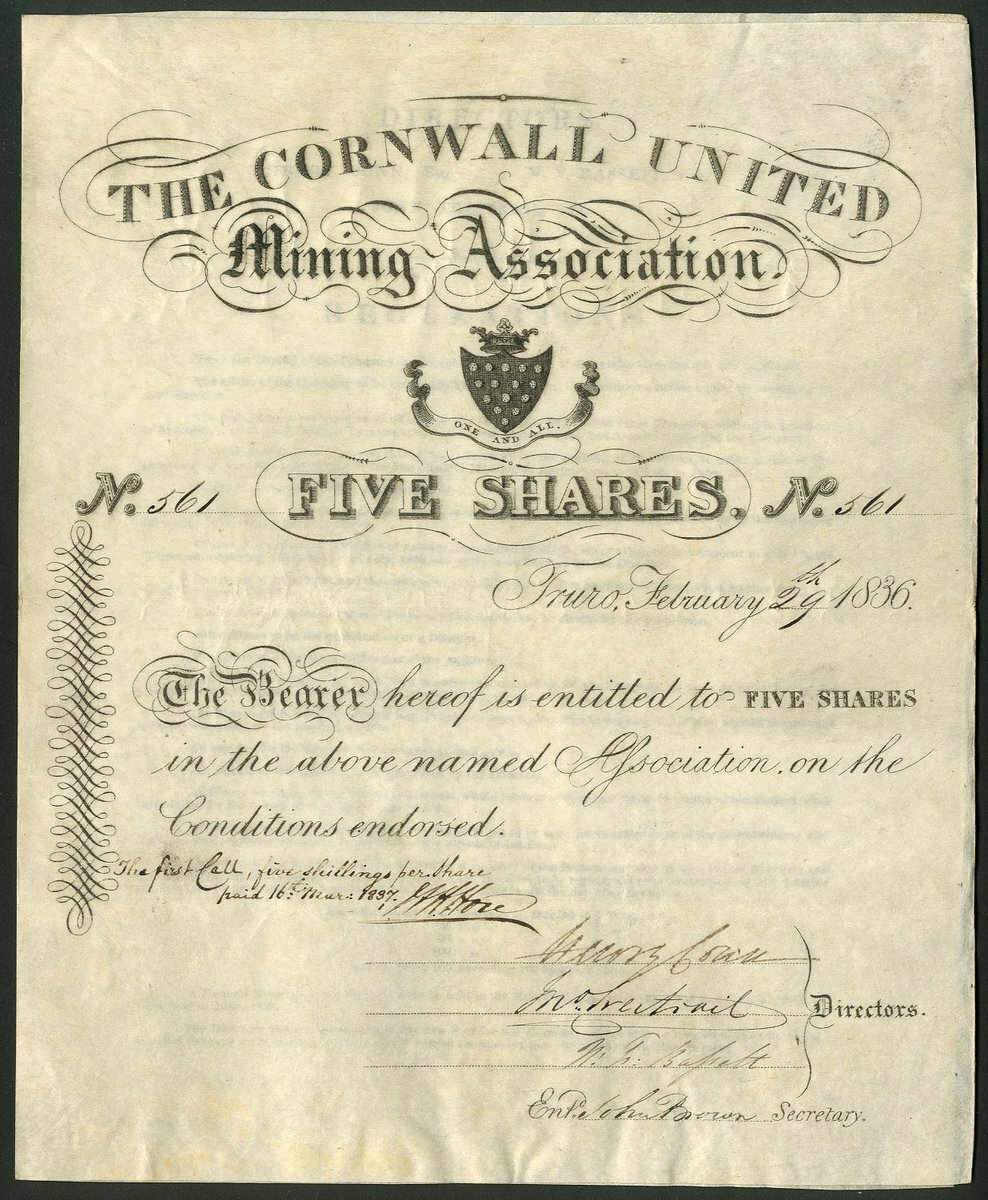 THE CORNWALL UNITED
Mining Association.
ONE AND ALL.
No. 561 FIVE SHARES. No. 561
Truro, February 29th 1836.
The Bearer hereof is entitled to FIVE SHARES
in the above named Association, on the
Conditions endorsed.
The first Call, five shillings per Share
paid 16th Mar: 1837.
Jno.
W. Bassett
Directors.
Entd. John Brown Secretary.